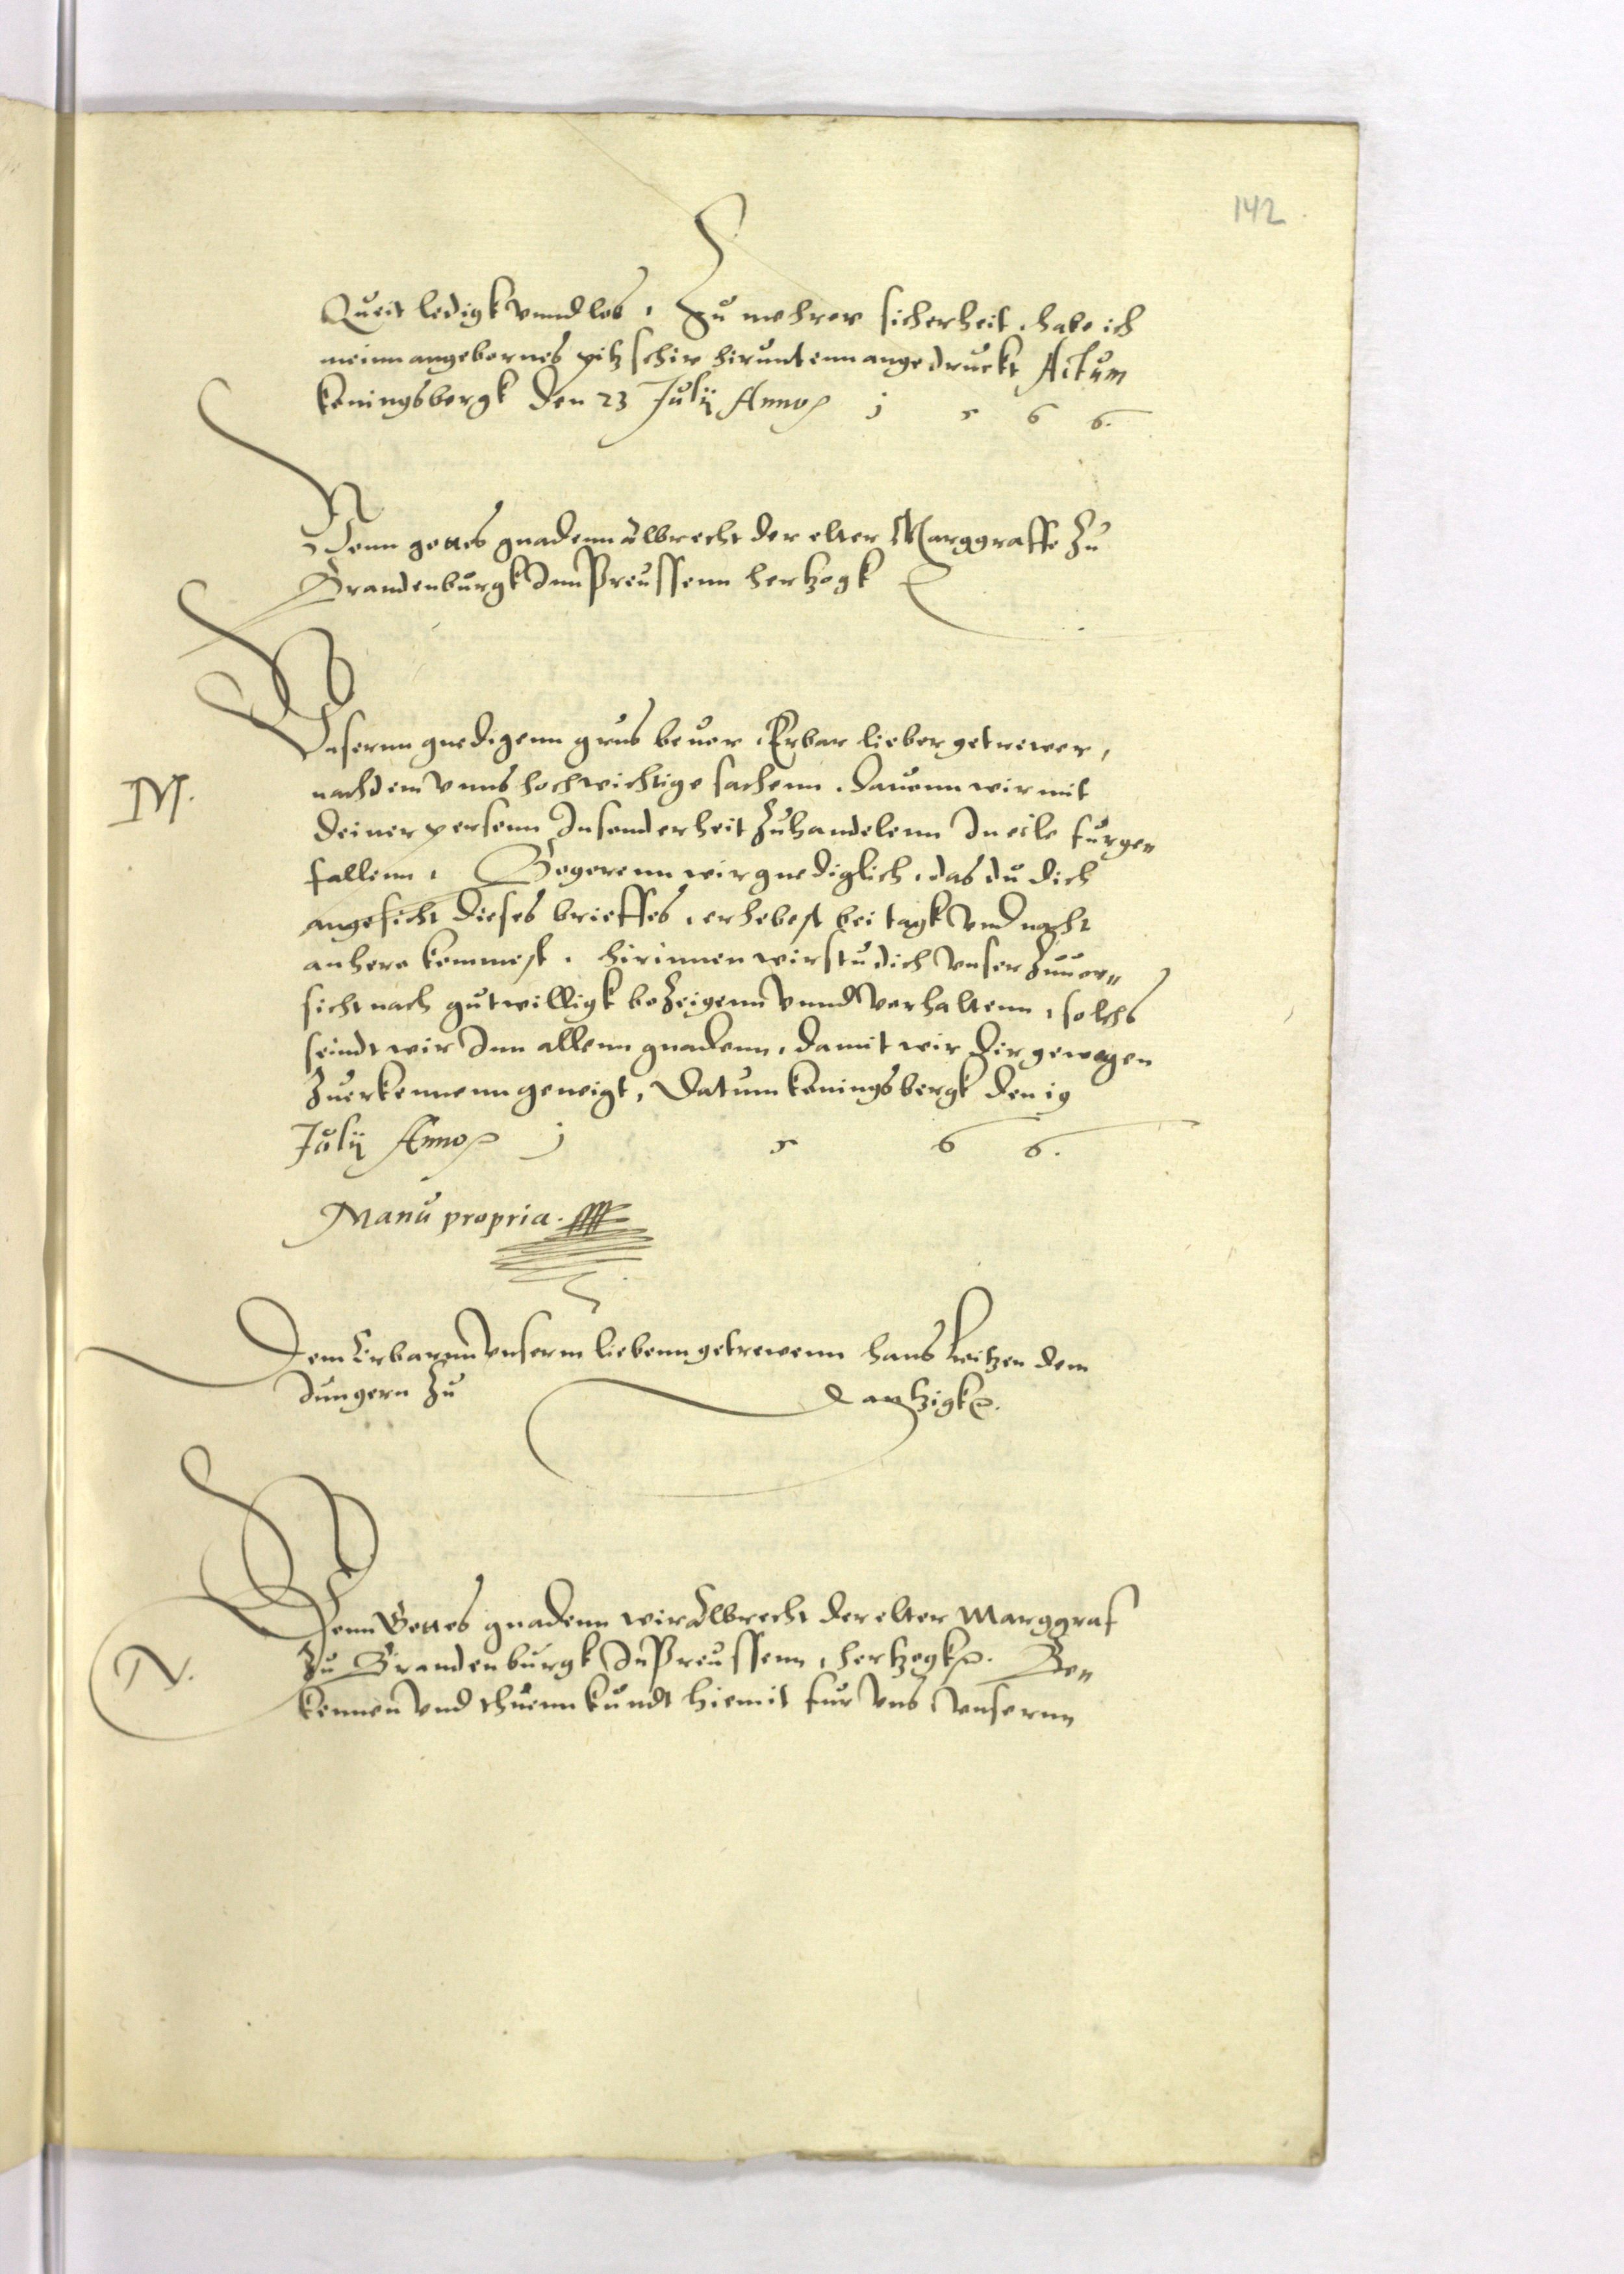 142
Queit ledigk vnnd los. Zu mehrer sicherheit, habe ich
meinn angebornes pitzschir hiruntenn angedruckt Actum
koningsbergk den 23 July Anno 1 5 6 6.
Vonn gottes gnadenn Albrecht der elter Marggraffe Zu
Brandenburgk Inn Preussenn hertzogk
Vnsernn gnedigenn grus beuor, Erbar lieber getrewer,
M.
nachdem vnns hochwichtige sachenn, dauonn wir mit
deiner personn Insonderheit Zuhandelenn In eile furge-
fallenn, Begerenn wir gnediglich, das du dich
angesicht dieses brieffes, erhebest bei tagk vnd nacht
anhero kommest, hirinnen wirstu dich vnser Zuuor-
sicht nach gutwilligk beZeigenn vnnd verhaltenn, solchs
seindt wir Inn allenn gnadenn, damit wir dir gewogen
Zuerkennenn geneigt, Datum koningsbergk den 19
July Anno 1 5 6 6.
Manu propria.
Dem Erbarenn vnserm liebenn getrewenn hans dem
Jungern Zu Dantzigk.
Vonn Gottes gnadenn wir Albrecht der elter Marggraf
N.
Zu Brandenburgk In Preussenn, hertzogk. Be-
kennen vnd thuenn kundt hiemit fur vns vnsernn